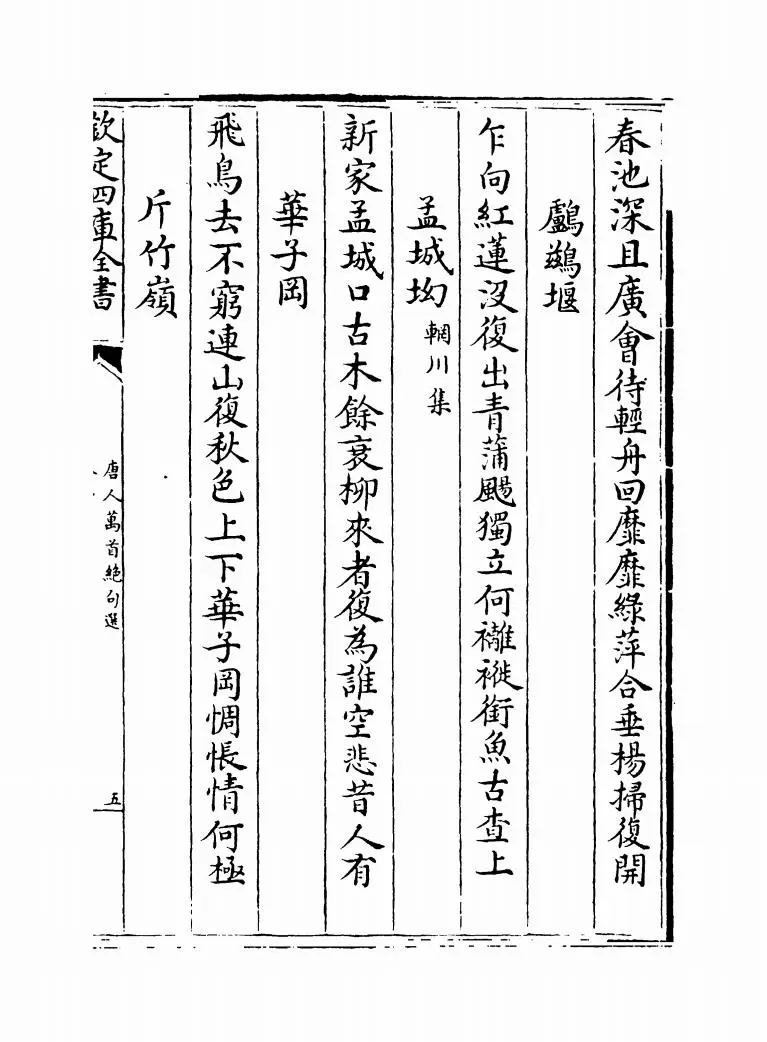 春池深且廣會待輕舟回靡靡綠萍合垂楊掃復開
鸕鷀堰
乍向紅蓮沒復出青蒲颺獨立何褵褷銜魚古查上
孟城坳 輞川集
新家孟城口古木餘衰柳來者復為誰空悲昔人有
華子岡
飛鳥去不窮連山復秋色上下華子岡惆悵情何極
斤竹嶺
欽定四庫全書
唐人萬首絕句選
五